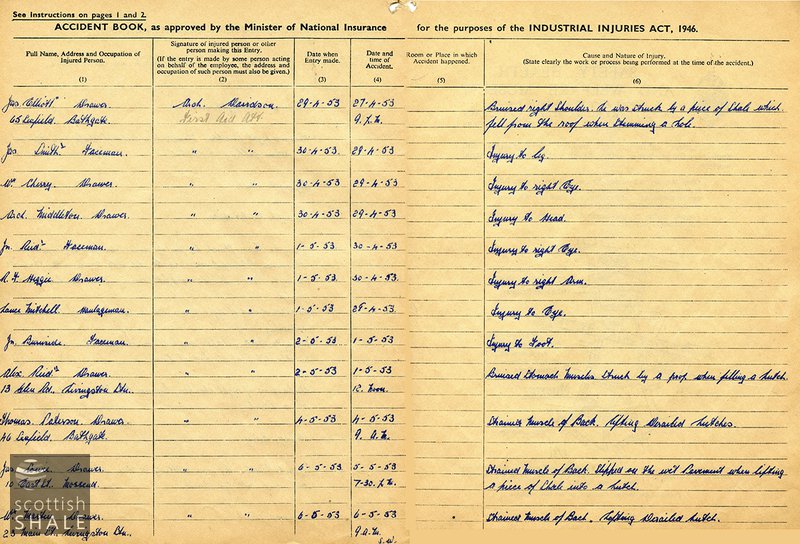 See Instructions on pages 1 and 2.
ACCIDENT BOOK, as approved by the Minister of National Insurance for the purposes of the INDUSTRIAL INJURIES ACT, 1946.
Full Name, Address and Occupation of Injured Person.
(1)
Signature of injured person or other person making this Entry.
(If the entry is made by some person acting on behalf of the employee, the address and occupation of such person must also be given.)
(2)
Date when Entry made.
(3)
Date and time of Accident.
(4)
Room or Place in which Accident happened.
(5)
Cause and Nature of Injury.
(State clearly the work or process being performed at the time of the accident.)
(6)
Jas. Elliott Drawer. Arch. Davidson. 29-4-53 27-4-53 Bruised right shoulder. he was struck by a piece of shale which
65 Linfield, Bathgate. First Aid Att. 9. P.M. fell from the roof when stemming a hole.
Jas. Smith Faceman. " " 30-4-53 29-4-53 Injury to leg.
Wm Cherry, Drawer. " " 30-4-53 29-4-53 Injury to right Eye.
Arch. Middleton. Drawer. " " 30-4-53 29-4-53 Injury to Head.
Jn. Reid Faceman. " " 1-5-53 30-4-53 Injury to right Eye.
R. F. Heggie. Drawer. " " 1-5-53 30-4-53 Injury to right Arm.
Mitchell. Haulageman. " " 1-5-53 29-4-53 Injury to Eye.
Jn. Burnside. Faceman. " " 2-5-53 1-5-53 Injury to Foot.
Alex. Reid Drawer. " " 2-5-53 1-5-53 Bruised Stomach Muscles. Struck by a prop when filling a hutch.
13 Glen Rd. Livingston Stn. 12. Noon.
Thomas. Paterson. Drawer. " " 4-5-53 4-5-53 Strained Muscle of Back. lifting Derailed hutches.
46 Linfield, Bathgate. 9. A.M.
Jas. Drawer. " " 6-5-53 5-5-53 Strained Muscle of Back. Slipped on the wet Pavement when lifting
10 East St. Mossend. 7-30. P.M. a piece of Shale into a hutch.
Wm Drawer. " " 6-5-53 6-5-53 Strained Muscle of Back. lifting Derailed hutch.
23 Main St. Livingston Stn. 9 A.M.
scottish
SHALE